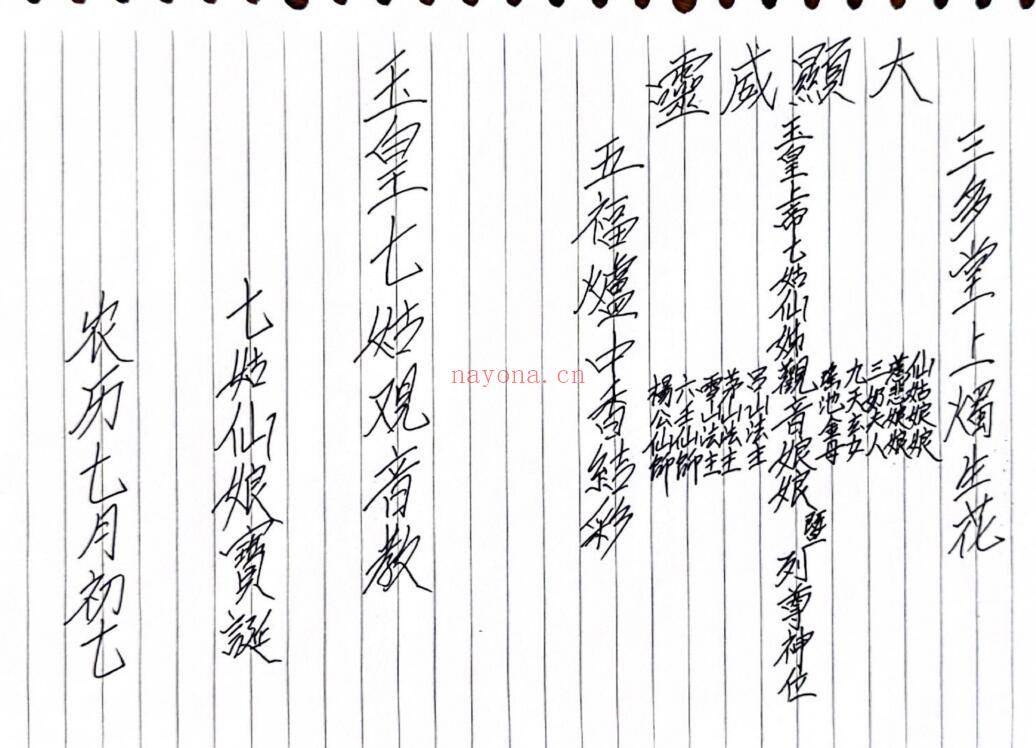 大顯威靈
三多堂上燭生花
仙姑娘娘
慈悲娘娘
三奶夫人
九天玄女
瑤池金母
玉皇上帝七姑仙姊觀音娘娘暨列尊神位
呂山法主
茅山法主
雪山法主
六壬仙師
楊公仙師
五福爐中香結彩
玉皇七姑观音教
七姑仙娘寳誕
农历七月初七
nayona.cn